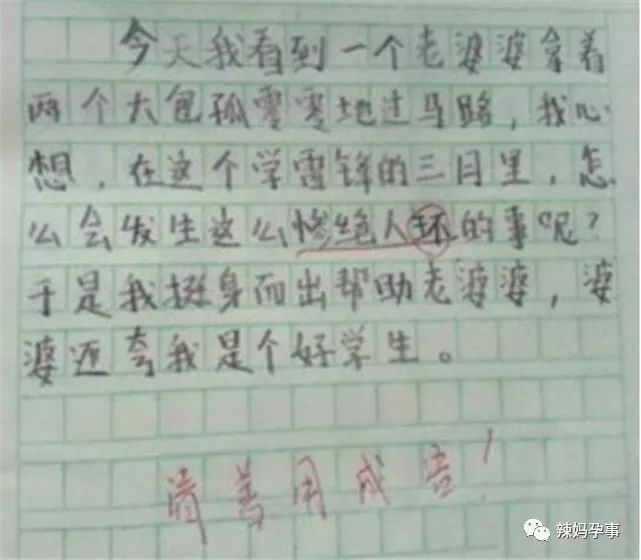 今天我看到一个老婆婆拿着
两个大包孤零零地过马路，我心
想，在这个学雷锋的三月里，怎
么会发生这么惨绝人环的事呢？
于是我挺身而出帮助老婆婆，婆
婆还夸我是个好学生。
请善用成语！
辣妈孕事